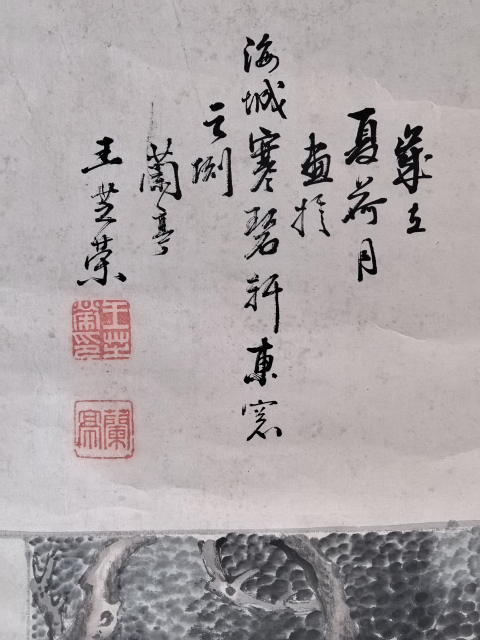 歲在
夏荷月
畫於
海城寒碧軒東窓
之側
蘭亭
王芝榮
王芝榮印
蘭亭